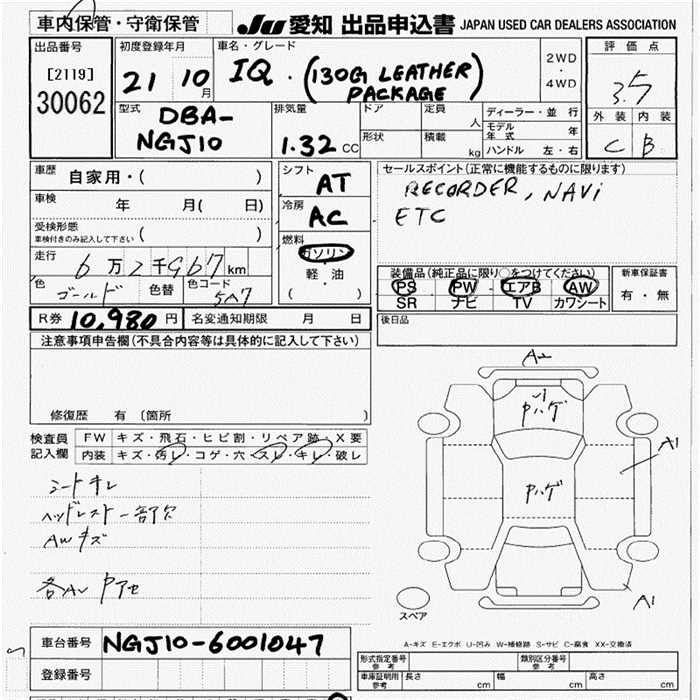 車内保管・守衛保管
JU 愛知 出品申込書 JAPAN USED CAR DEALERS ASSOCIATION
出品番号
[2119]
30062
初度登録年月
21 10 月
車名・グレード
IQ . (130G LEATHER PACKAGE)
2WD
・
4WD
評価点
3.5
外装 内装
C B
型式
DBA-
NGJ10
排気量
1.32 CC
ドア
形状
定員
人
積載
kg
ディーラー・並行
モデル年式 年
ハンドル 左・右
車歴
自家用・( )
車検 年 月( 日)
受検形態
車検付きのみ記入して下さい ( )
走行
6万2千967 km
色
ゴールド
色替
色コード
5A7
シフト
AT
冷房
AC
燃料
ガソリン
軽・油
( )
セールスポイント(正常に機能するものに限ります)
RECORDER, NAVi
ETC
装備品(純正品に限り○をつけてください)
PS PW エアB AW
SR ナビ TV カワシート
新車保証書
有・無
R券 10,980 円 名変通知期限 月 日
後日品
注意事項申告欄(不具合内容等は具体的に記入して下さい)
修復歴 有 〔箇所 〕
検査員
記入欄
FW キズ・飛石・ヒビ割・リペア跡・X要
内装 キズ・汚レ・コゲ・穴・スレ・キレ・破レ
シートキレ
ヘッドレスト一部欠
AWキズ
各AL Pアセ
A2
Pハゲ
A1
Pハゲ
A1
スペア
A-キズ E-エクボ U-凹み W-補修跡 S-サビ C-腐食 XX-交換済
車台番号 NGJ10-6001047
登録番号
形式指定番号
参考
類別区分番号
参考
車庫証明用
参考
長さ cm 幅 cm 高さ cm